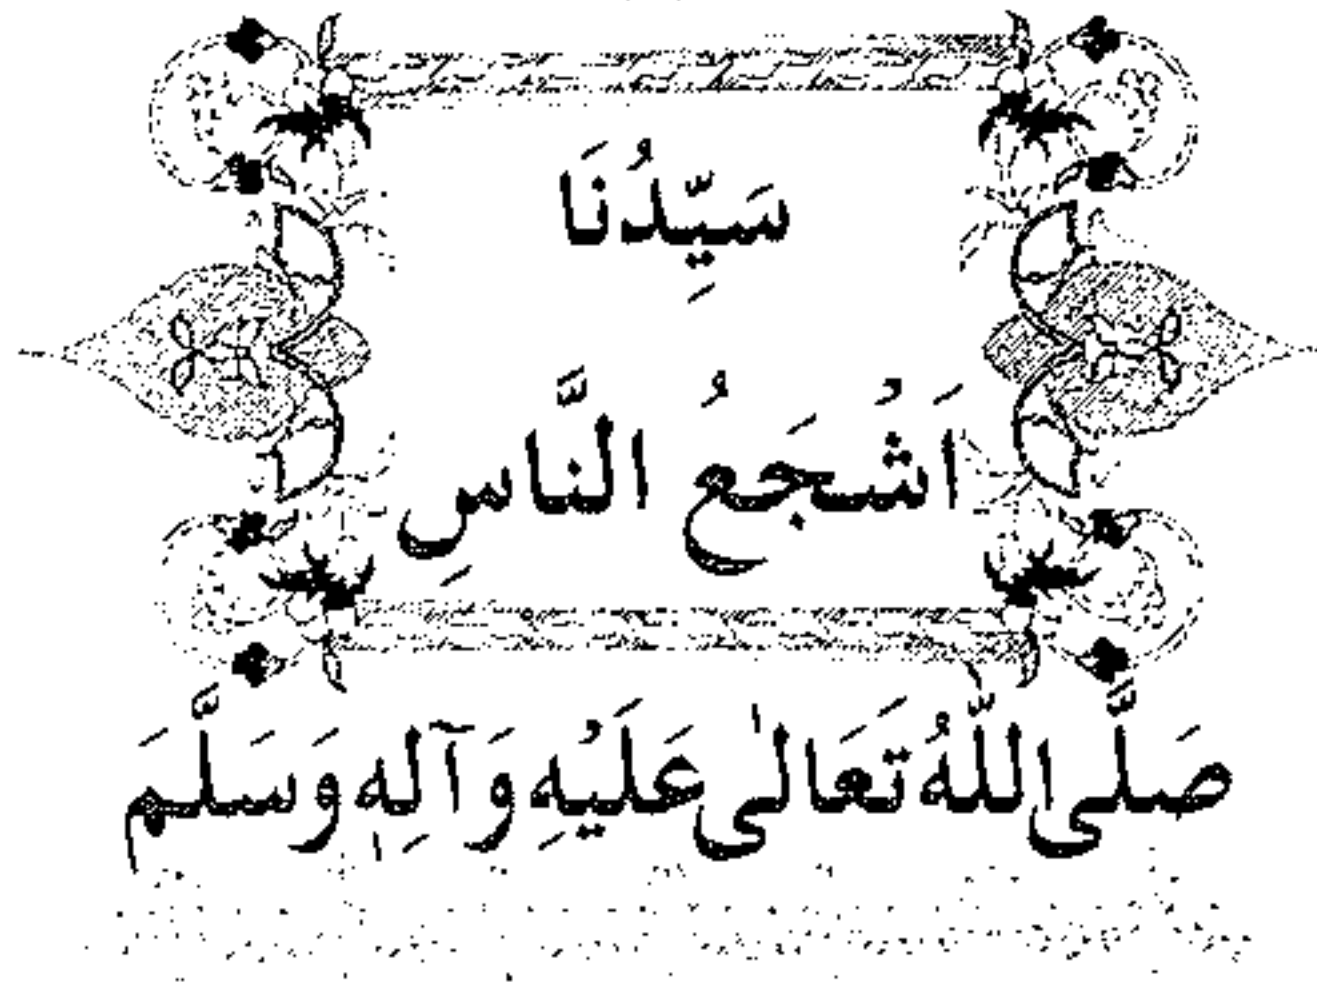 سَيِّدُنَا
اَشْجَعُ النَّاسِ
صَلَّى اللّٰهُ تَعَالىٰ عَلَيْهِ وَآلِهٖ وَسَلَّمَ